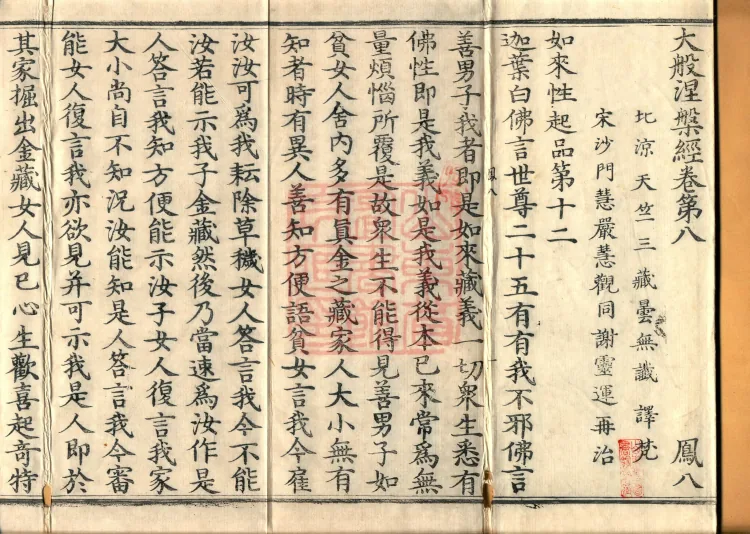 大般涅槃經卷第八 鳳八
北涼天竺三藏曇無讖譯梵
宋沙門慧嚴慧觀同謝靈運再治
如來性起品第十二
迦葉白佛言世尊二十五有有我不邪佛言
善男子我者即是如來藏義一切衆生悉有
鳳八
佛性即是我義如是我義從本已來常爲無
量煩惱所覆是故衆生不能得見善男子如
貧女人舍內多有眞金之藏家人大小無有
知者時有異人善知方便語貧女言我今雇
汝汝可爲我耘除草穢女人答言我今不能
汝若能示我子金藏然後乃當速爲汝作是
人答言我知方便能示汝子女人復言我家
大小尚自不知況汝能知是人答言我今審
能女人復言我亦欲見并可示我是人即於
其家掘出金藏女人見已心生歡喜起奇特